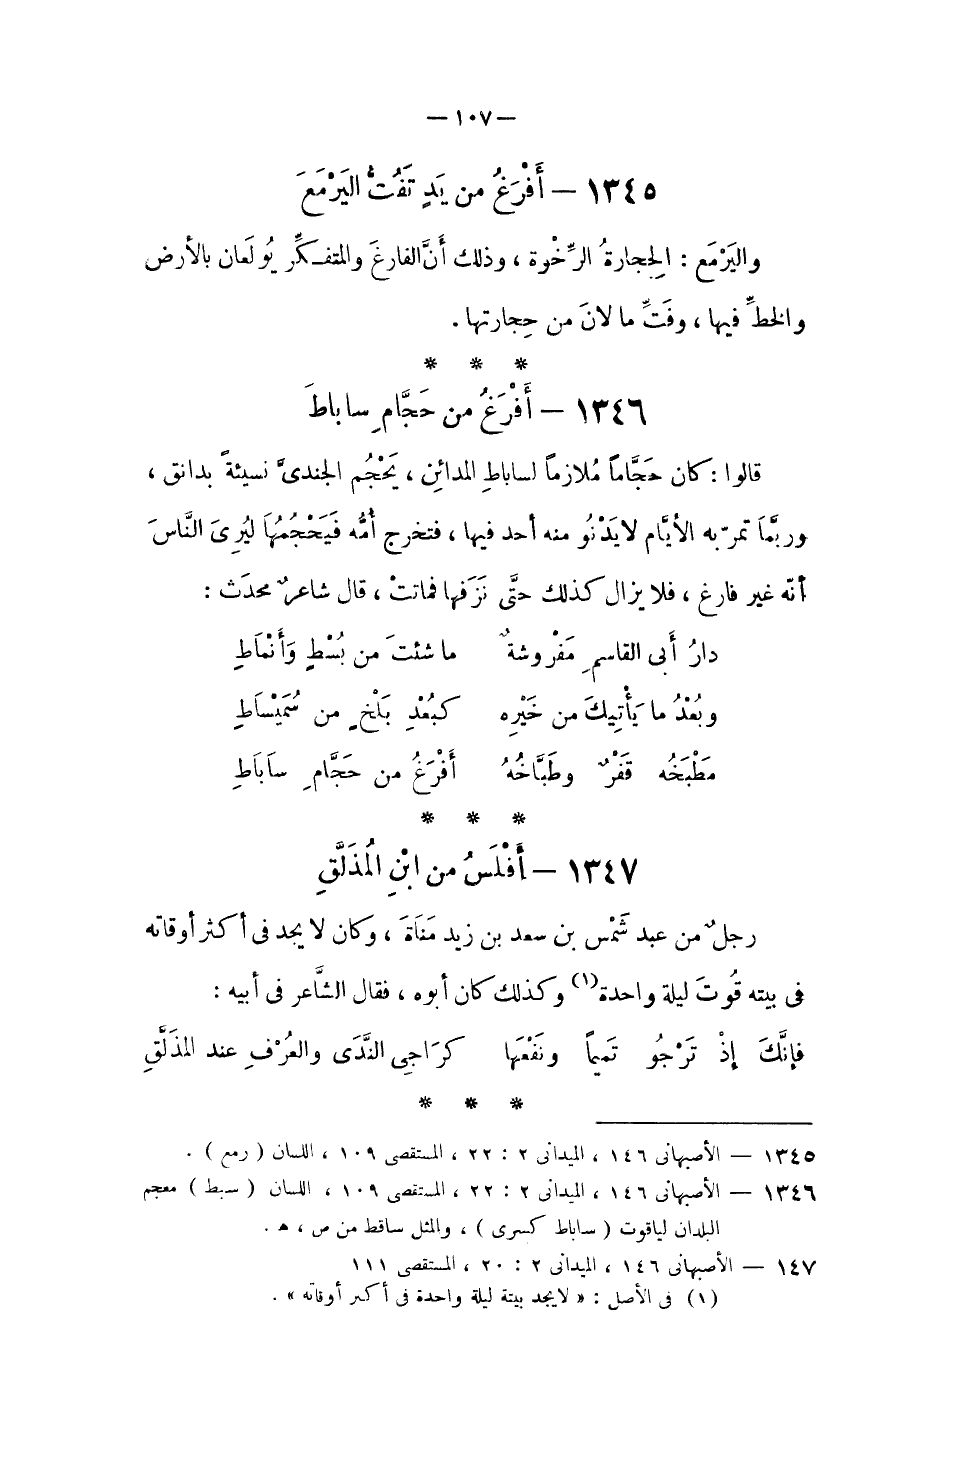 — ١٠٧ —
١٣٤٥ — أَفْرَغُ من يَدٍ تَفُتُّ اليَرْمَعَ
واليَرْمَع : الحِجارةُ الرِّخْوة ، وذلك أنَّ الفارغَ والمتفكِّر يُولَعان بالأرض
والخطِّ فيها ، وفَتِّ ما لانَ من حِجارتها .
* * *
١٣٤٦ — أَفْرَغُ من حَجَّامِ ساباطَ
قالوا : كان حَجَّاماً مُلازماً لساباطِ المدائنِ ، يَحْجُم الجندىَّ نسيئةً بدانق ،
وربَّمَا تمرّ به الأيَّام لايَدْنُو منه أحد فيها ، فتخرج أُمُّه فَيَحْجُمُهَا ليُرِىَ النَّاسَ
أنّه غير فارغ ، فلا يزال كذلك حتَّى نَزَفها فماتتْ ، قال شاعرٌ محدَث :
دارُ أَبى القاسمِ مَفْروشةٌ ما شئتَ من بُسْطٍ وَأَنْمَاطِ
وبُعْدُ ما يَأْتِيكَ من خَيْرِه كبُعْدِ بَلْخٍ من سُمَيْسَاطِ
مَطْبَخُه قَفْرٌ وطَبَّاخُهُ أَفْرَغُ من حَجَّامِ سَابَاطِ
* * *
١٣٤٧ — أَفْلَسُ من ابْنِ المُذَلَّقِ
رجلٌ من عبد شَمْس بن سعد بن زيد مَنَاةَ ، وكان لا يجد فى أكثر أوقاته
فى بيته قُوتَ ليلة واحدة (١) وكذلك كان أبوه ، فقال الشَّاعر فى أبيه :
فإنَّكَ إذْ تَرْجُو تَميماً ونَفْعَها كرَاجِى النَّدَى والعُرْفِ عند المذَلَّقِ
* * *
١٣٤٥ — الأصبهانى ١٤٦ ، الميدانى ٢ : ٢٢ ، المستقصى ١٠٩ ، اللسان ( رمع ) .
١٣٤٦ — الأصبهانى ١٤٦ ، الميدانى ٢ : ٢٢ ، المستقصى ١٠٩ ، اللسان ( سبط ) معجم
البلدان لياقوت ( ساباط كسرى ) ، والمثل ساقط من ص ، ه .
١٤٧ — الأصبهانى ١٤٦ ، الميدانى ٢ : ٢٠ ، المستقصى ١١١
(١) فى الأصل : « لايجد بيتة ليلة واحدة فى أكثر أوقاته » .